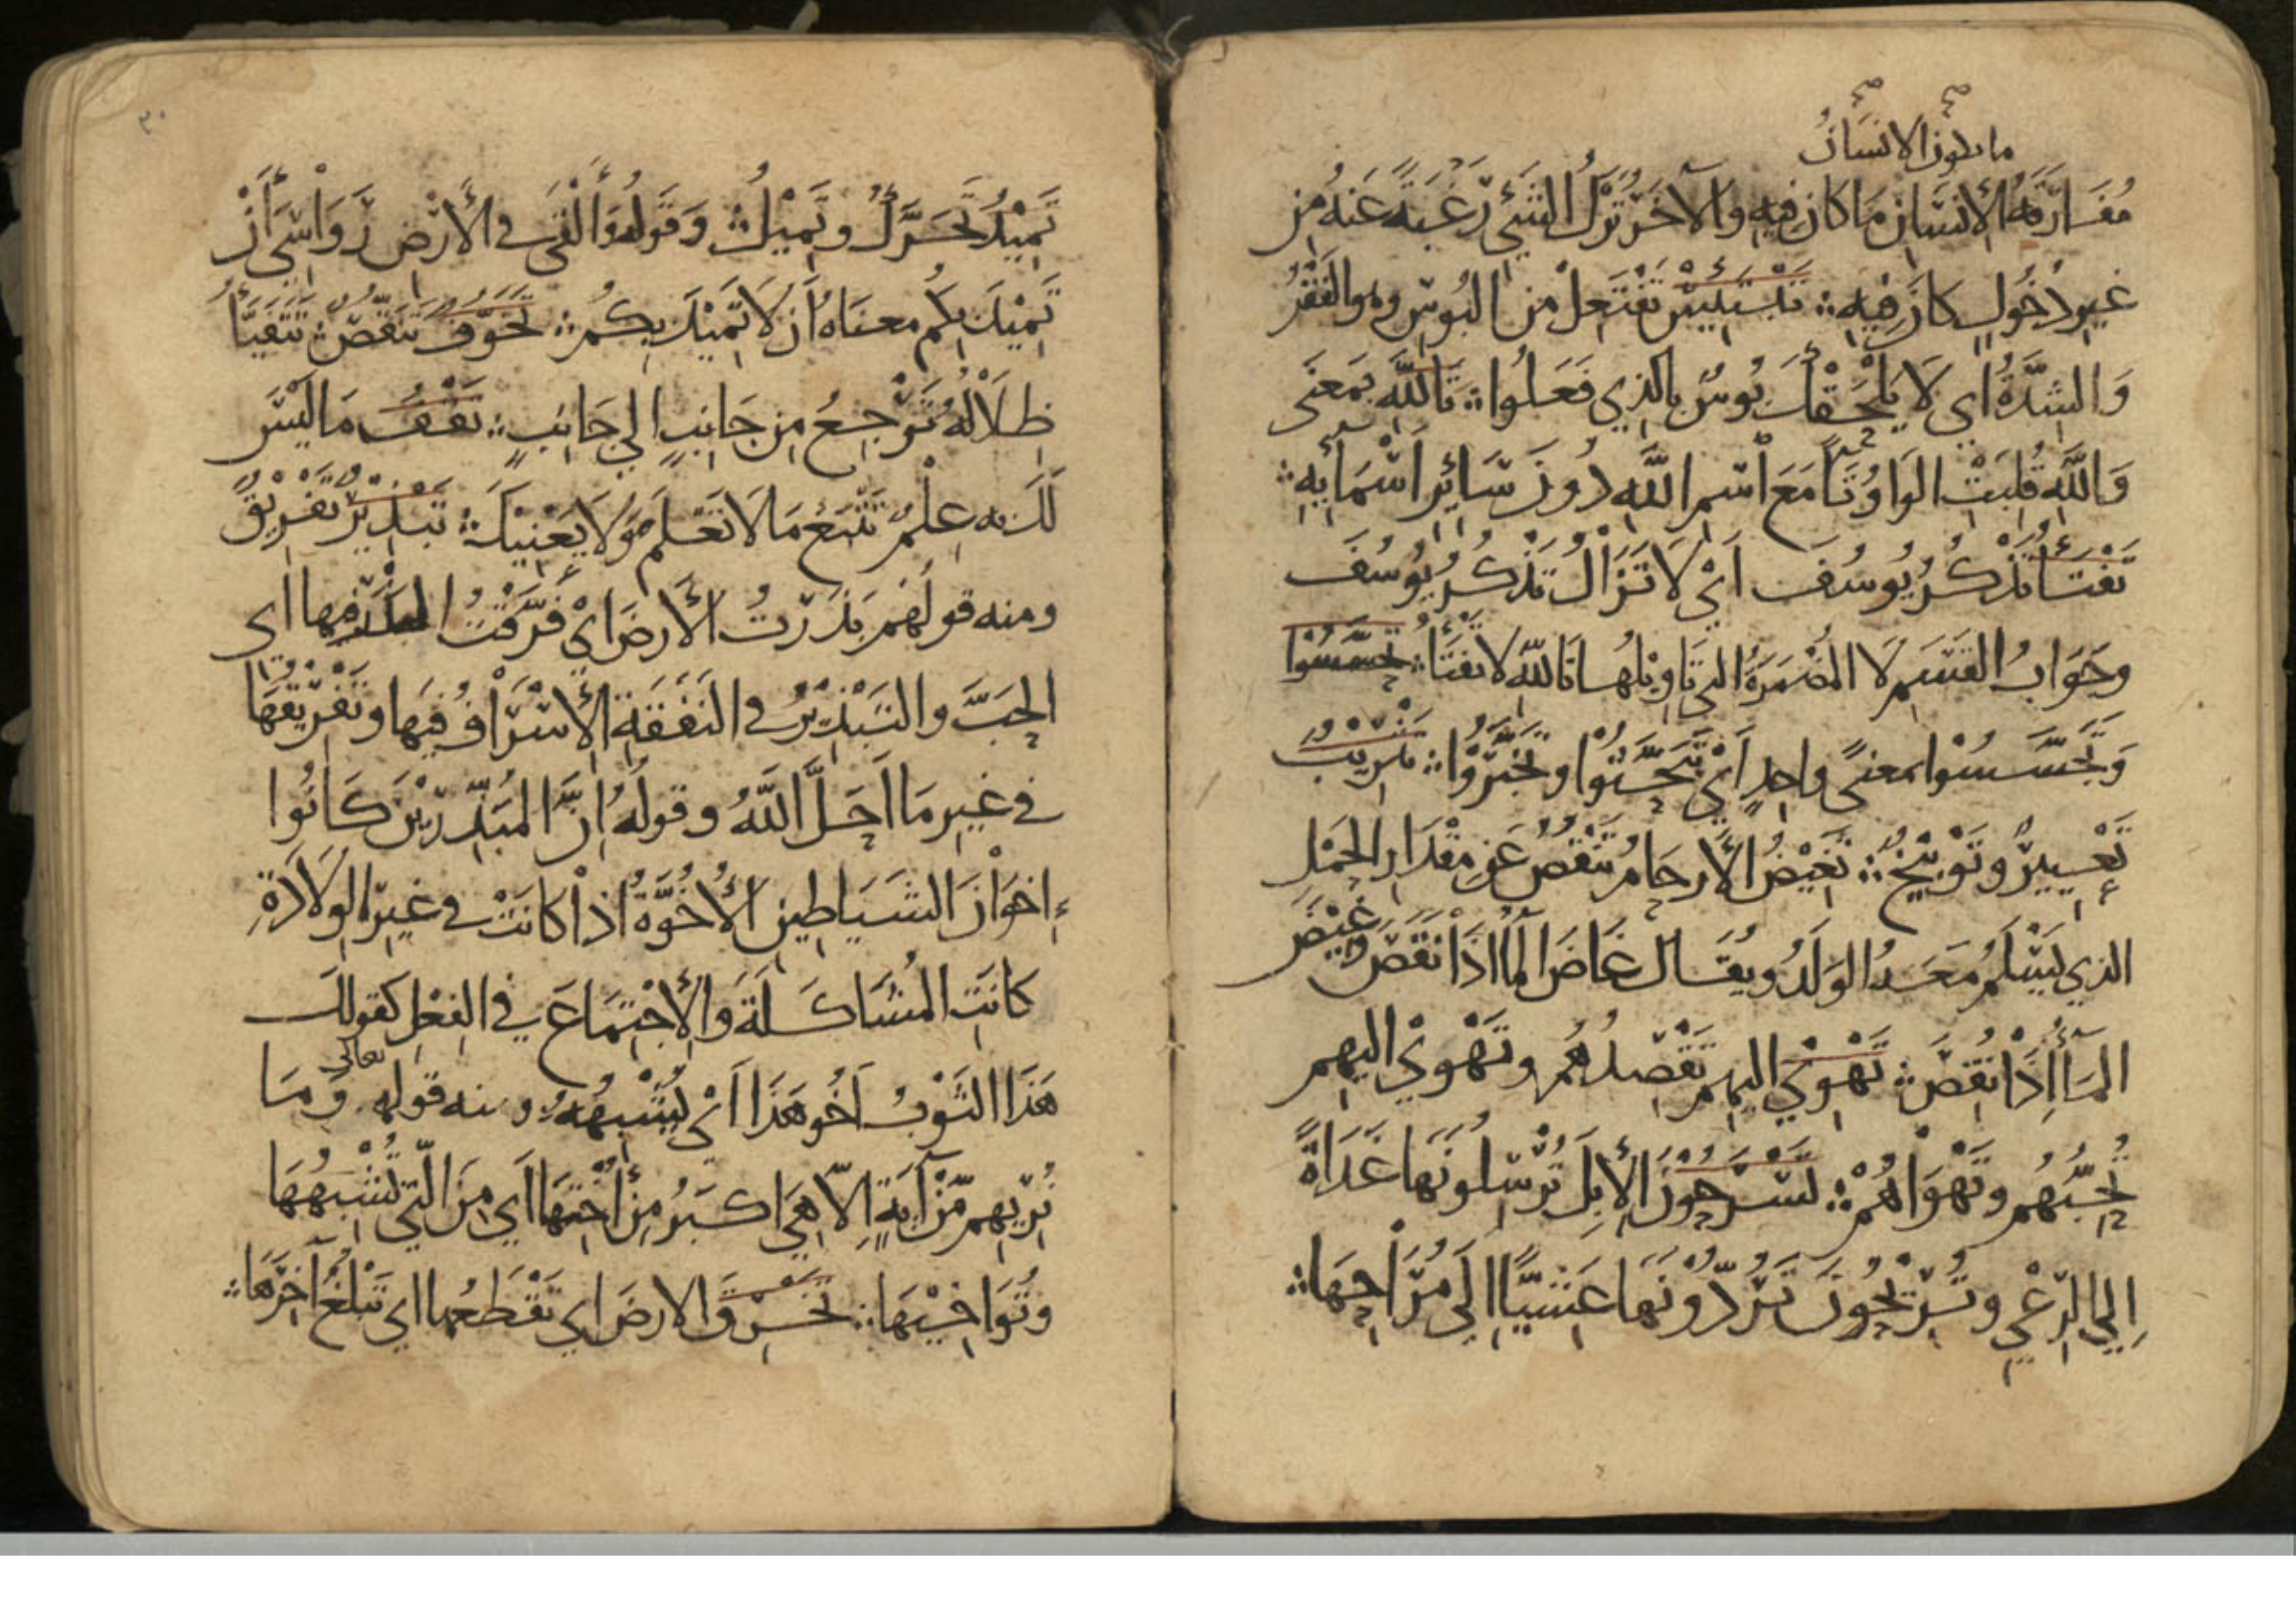 صح صح
ما ىكون الانسان
مُفَارَقَة الإنسَانِ مَا كَانَ فِيهِ وَالآخَرُ تَرْكُ الشَّيْءِ رَغْبَةً عَنهُ مِن
غَيرِ دُخُولٍ كَانَ فِيهِ ؞ تَبْتَئِيسْ تَفْتَعِلْ مِنَ البُوسِ وهو الفَقْرُ
وَالشِّدَّةُ اي لَا يَلْحَقْكَ بُوسٌ بِالذِي فَعَلُوا ؞ تَاللَّهِ بمَعنَى
وَاللَّهِ قُلِبَتِ الوَاوُ تَاً مَعَ اسْمِ اللَّهِ دُونَ سَائِرِ أَسْمَائِهِ ؞
تَفْتَأُ تَذْكُرُ يُوسُفَ اَيْ لَا تَزَالُ تَذْكُرُ يُوسُفَ
وجَوَابُ القَسَمِ لَا المُضْمَرَةُ التِي تَاوِيلُهَا تَاللَّهِ لا تَفتَأُ ؞ تحَسَّسُوا
وَتَجَسَّسُوا بمعنًى واحِدٍ أَيْ تَبَحَّثُوا وتَخَبَّرُوْا ؞ تَثْرِيْبُ
تَعْيِيرٌ وتَوْبِيْخٌ ؞ تَغِيْضُ الأَرحَامُ تَنْقُصُ عَنِ مِقْدَارِ الحَمْلِ
الذي يَسْلَمُ مَعَهُ الوَلَدُ ويُقَال غَاضَ المَآ اذَا نَقَصَ وغِيْضَ
المَآءُ إِذَا نُقِصَ ؞ تَهْوِيْ اليهِم تَقْصِدُهُم وتَهْوِيْ اليهِم
تُحِبُّهُم وتَهْوَاهُمْ ؞ تَسْرَحُوْنَ الإِبِلَ تُرْسِلُونَهَا غَدَاةً
اِلَي الرَّعْيِ وتُرِيْحُونَ تَرُدُّوْنَهَا عَشِيًّا إِلَي مُرَاحِهَا ؞
٣٠
تَمِيْدُ تَحَرَّكُ وتَمِيْلُ وَقَولُهُ وَأَلْقَى في الأَرْضِ رَوَاسِيَ أَنْ
تَمِيْدَ بِكُم معنَاهُ أَن لَا تَمِيْدَ بِكُمْ ؞ تَخَوُّفٌ تَنَقُّصٌ ؞ تَتَفَيَّأُ
ظِلَالُهُ تَرْجِعُ مِن جَانِبٍ إلي جَانِبٍ ؞ تَقْفُ مَا لَيْسَ
لَكَ بِهِ عِلْمٌ تَتْبَعُ مَا لَا تَعْلَمُ وَلَا يَعْنِيكَ ؞ تَبْذِيْرٌ تَفْرِيْقٌ
ومنه قولُهُم بَذَرْتُ الأَرضَ ايْ فَرَّقْتُ البَذْرَ فِيها اي
الحَبَّ والتَبْذِيْرُ في النَفَقَةِ الإِسْرَافُ فِيهَا وتَفْرِيْقُهَا
في غَيرِ مَا اَحَلَّ اللَّهُ وقولُهُ إِنَّ المُبَذِّرِيْنَ كَانُوا
إِخوَانَ الشَيَاطِينِ الأُخُوَّةُ اذَا كَانَتْ في غَيرِ الوِلَادَةِ
كَانَتِ المُشَاكَلَةَ وَالإِجْتِمَاعَ فِي الفِعْلِ كَقولك
هَذَا الثَّوْبُ اَخُو هَذَا اَيْ يُشْبِهُهُ ومنه قوله تعالي وَمَا
نُرِيهِم مِّنْ آيَةٍ اِلّا هِيَ اَكبَرُ مِنْ أُخْتِهَا اَي مِنَ الَّتِي تُشْبِهُهَا
وتُوَاخِيْهَا ؞ تَخْرِقَ الارضَ اي تَقْطَعُها اي تَبْلُغُ آخِرَهَا ؞